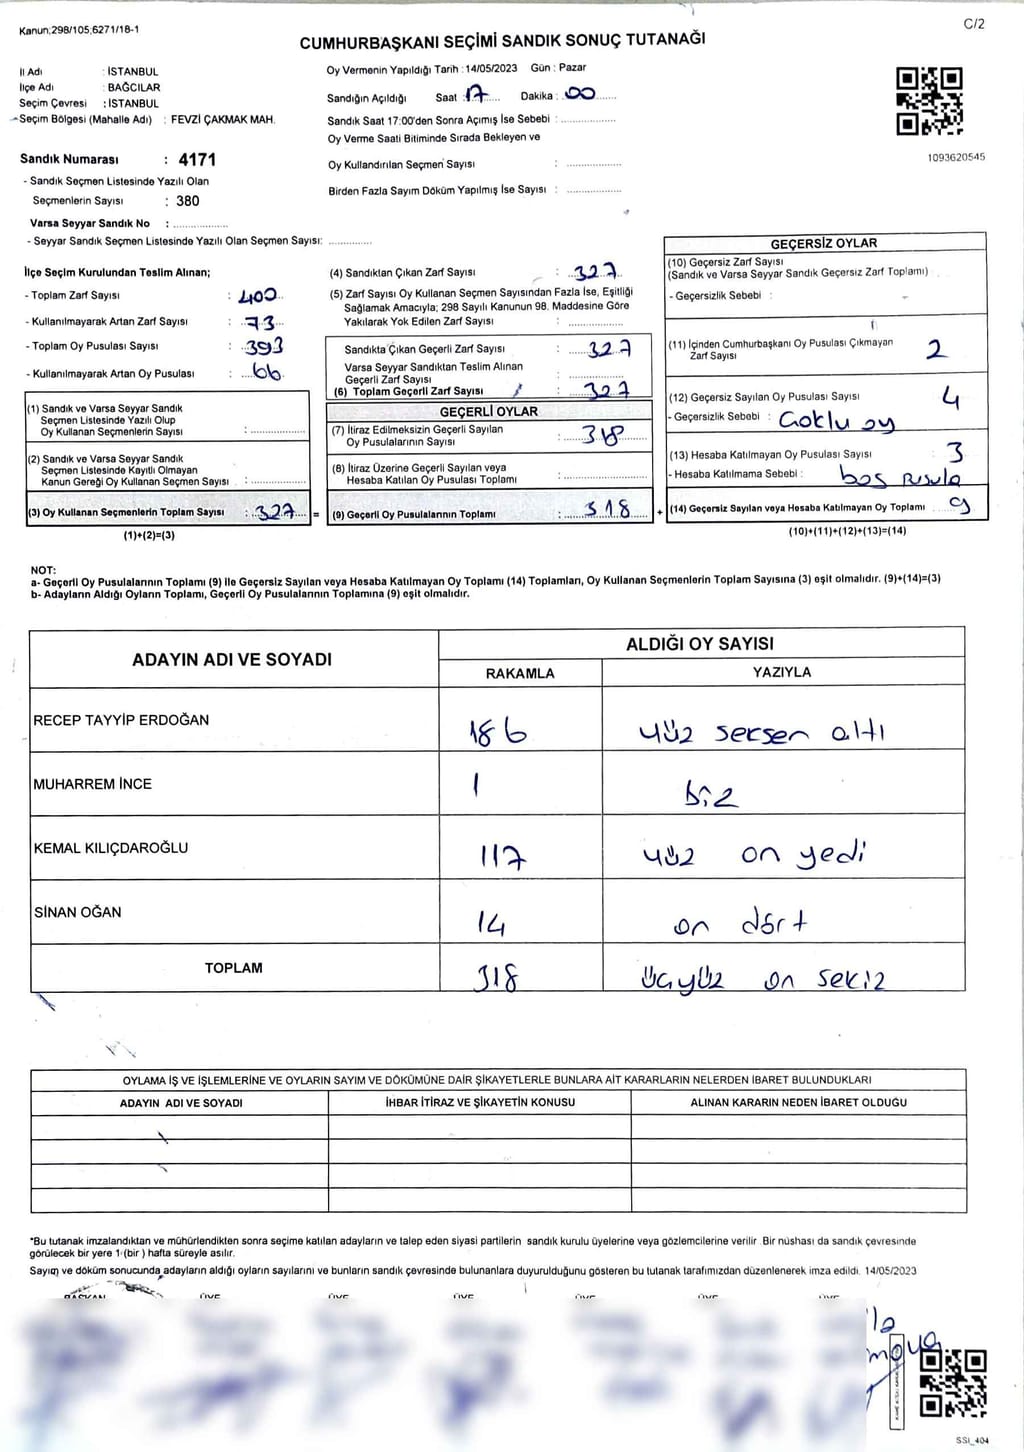 Kanun;298/105;6271/18-1
C/2
CUMHURBAŞKANI SEÇİMİ SANDIK SONUÇ TUTANAĞI
İl Adı : İSTANBUL
İlçe Adı : BAĞCILAR
Seçim Çevresi : İSTANBUL
Seçim Bölgesi (Mahalle Adı) : FEVZİ ÇAKMAK MAH.
Oy Vermenin Yapıldığı Tarih : 14/05/2023 Gün : Pazar
Sandığın Açıldığı Saat : 17 Dakika : 00
Sandık Saat 17:00'den Sonra Açımış İse Sebebi : ....................
Oy Verme Saati Bitiminde Sırada Bekleyen ve
Oy Kullandırılan Seçmen Sayısı : ....................
Birden Fazla Sayım Döküm Yapılmış İse Sayısı : ....................
1093620545
Sandık Numarası : 4171
- Sandık Seçmen Listesinde Yazılı Olan
Seçmenlerin Sayısı : 380
Varsa Seyyar Sandık No : ....................
- Seyyar Sandık Seçmen Listesinde Yazılı Olan Seçmen Sayısı: ...............
İlçe Seçim Kurulundan Teslim Alınan;
- Toplam Zarf Sayısı : 400
- Kullanılmayarak Artan Zarf Sayısı : 73
- Toplam Oy Pusulası Sayısı : 393
- Kullanılmayarak Artan Oy Pusulası : 66
(1) Sandık ve Varsa Seyyar Sandık
Seçmen Listesinde Yazılı Olup
Oy Kullanan Seçmenlerin Sayısı : ....................
(2) Sandık ve Varsa Seyyar Sandık
Seçmen Listesinde Kayıtlı Olmayan
Kanun Gereği Oy Kullanan Seçmen Sayısı : ....................
(3) Oy Kullanan Seçmenlerin Toplam Sayısı : 327 =
(1)+(2)=(3)
(4) Sandıktan Çıkan Zarf Sayısı : 327
(5) Zarf Sayısı Oy Kullanan Seçmen Sayısından Fazla İse, Eşitliği
Sağlamak Amacıyla; 298 Sayılı Kanunun 98. Maddesine Göre
Yakılarak Yok Edilen Zarf Sayısı : ....................
Sandıkta Çıkan Geçerli Zarf Sayısı : 327
Varsa Seyyar Sandıktan Teslim Alınan
Geçerli Zarf Sayısı : ....................
(6) Toplam Geçerli Zarf Sayısı : 327
GEÇERLİ OYLAR
(7) İtiraz Edilmeksizin Geçerli Sayılan
Oy Pusulalarının Sayısı : 318
(8) İtiraz Üzerine Geçerli Sayılan veya
Hesaba Katılan Oy Pusulası Toplamı : ....................
(9) Geçerli Oy Pusulalarının Toplamı : 318 +
GEÇERSİZ OYLAR
(10) Geçersiz Zarf Sayısı
(Sandık ve Varsa Seyyar Sandık Geçersiz Zarf Toplamı)
- Geçersizlik Sebebi : -
(11) İçinden Cumhurbaşkanı Oy Pusulası Çıkmayan
Zarf Sayısı 2
(12) Geçersiz Sayılan Oy Pusulası Sayısı 4
- Geçersizlik Sebebi : Çoklu oy
(13) Hesaba Katılmayan Oy Pusulası Sayısı 3
- Hesaba Katılmama Sebebi : boş pusula
(14) Geçersiz Sayılan veya Hesaba Katılmayan Oy Toplamı 9
(10)+(11)+(12)+(13)=(14)
NOT:
a- Geçerli Oy Pusulalarının Toplamı (9) ile Geçersiz Sayılan veya Hesaba Katılmayan Oy Toplamı (14) Toplamları, Oy Kullanan Seçmenlerin Toplam Sayısına (3) eşit olmalıdır. (9)+(14)=(3)
b- Adayların Aldığı Oyların Toplamı, Geçerli Oy Pusulalarının Toplamına (9) eşit olmalıdır.
ADAYIN ADI VE SOYADI
ALDIĞI OY SAYISI
RAKAMLA YAZIYLA
RECEP TAYYİP ERDOĞAN 186 yüz seksen altı
MUHARREM İNCE 1 biz
KEMAL KILIÇDAROĞLU 117 yüz on yedi
SİNAN OĞAN 14 on dört
TOPLAM 318 üçyüz on sekiz
OYLAMA İŞ VE İŞLEMLERİNE VE OYLARIN SAYIM VE DÖKÜMÜNE DAİR ŞİKAYETLERLE BUNLARA AİT KARARLARIN NELERDEN İBARET BULUNDUKLARI
ADAYIN ADI VE SOYADI İHBAR İTİRAZ VE ŞİKAYETİN KONUSU ALINAN KARARIN NEDEN İBARET OLDUĞU
*Bu tutanak imzalandıktan ve mühürlendikten sonra seçime katılan adayların ve talep eden siyasi partilerin sandık kurulu üyelerine veya gözlemcilerine verilir. Bir nüshası da sandık çevresinde
görülecek bir yere 1 (bir ) hafta süreyle asılır.
Sayım ve döküm sonucunda adayların aldığı oyların sayılarını ve bunların sandık çevresinde bulunanlara duyurulduğunu gösteren bu tutanak tarafımızdan düzenlenerek imza edildi. 14/05/2023
BAŞKAN ÜYE ÜYE ÜYE ÜYE ÜYE ÜYE
SSİ_404